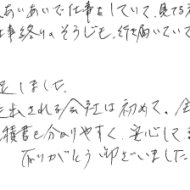 あいあいで仕事をしていて、見てる
事終りのそうじも、行き届いていて
足しました。
をされる会社は初めて、金
積書も分かりやすく、安心して
ありがとう御ざいました